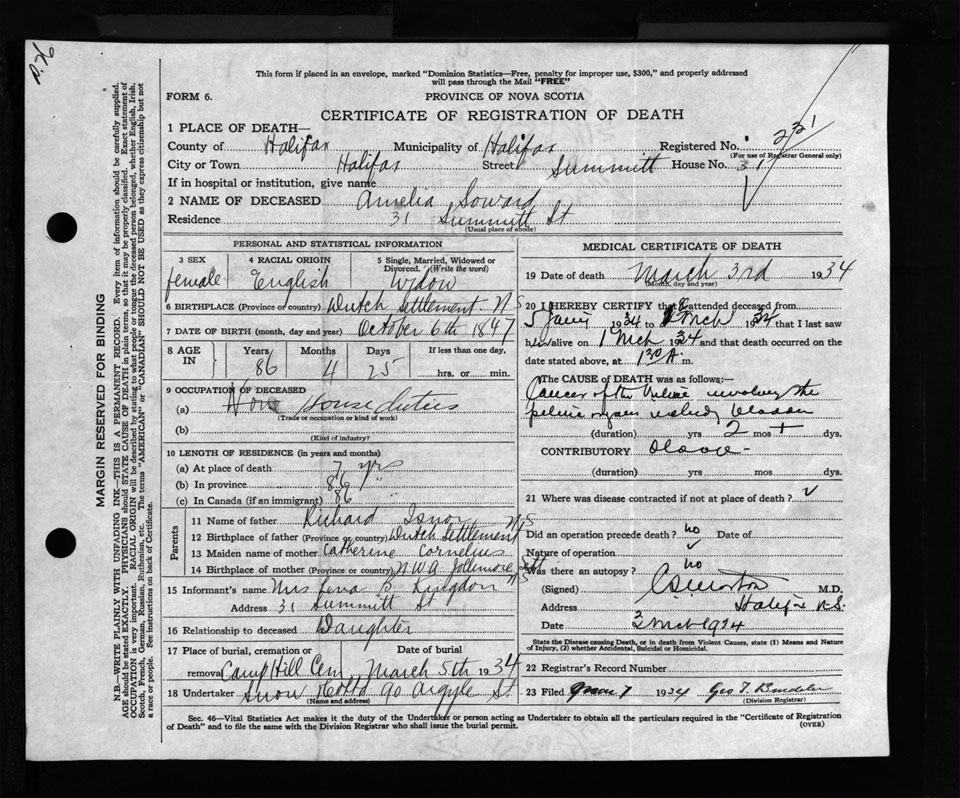 This form if placed in an envelope, marked "Dominion Statistics—Free, penalty for improper use, $300," and properly addressed
will pass through the Mail "FREE"
FORM 6.
PROVINCE OF NOVA SCOTIA
CERTIFICATE OF REGISTRATION OF DEATH
1 PLACE OF DEATH—
County of Halifax Municipality of Halifax Registered No. 221
(For use of Registrar General only)
City or Town Halifax Street Summitt House No. 31
If in hospital or institution, give name
2 NAME OF DECEASED Amelia Soward
Residence 31 Summitt St
(Usual place of abode)
PERSONAL AND STATISTICAL INFORMATION
3 SEX 4 RACIAL ORIGIN 5 Single, Married, Widowed or Divorced. (Write the word)
female English Widow
6 BIRTHPLACE (Province or country) Dutch Settlement. N S
7 DATE OF BIRTH (month, day and year) October 6th 1847
8 AGE IN Years Months Days If less than one day,
86 4 25 hrs. or min.
9 OCCUPATION OF DECEASED
(a) House duties
(Trade or occupation or kind of work)
(b)
(Kind of industry?)
10 LENGTH OF RESIDENCE (in years and months)
(a) At place of death 7 yrs
(b) In province 86 "
(c) In Canada (if an immigrant) 86 "
Parents
11 Name of father Richard Isnor
12 Birthplace of father (Province or country) Dutch Settlement NS
13 Maiden name of mother Catherine Cornelius
14 Birthplace of mother (Province or country) N.W.A. Jollimore Sett NS
15 Informant's name Mrs Lena B Kingdon
Address 31 Summitt St
16 Relationship to deceased Daughter
17 Place of burial, cremation or removal Date of burial
Camp Hill Cem March 5th 1934
18 Undertaker Snow & Co Ltd 90 Argyle St
(Name and address)
MEDICAL CERTIFICATE OF DEATH
19 Date of death March 3rd 1934
(Month, day and year)
20 I HEREBY CERTIFY that I attended deceased from
5 Jany 1934 to Mch 1934 that I last saw
her alive on 1 Mch 1934 and that death occurred on the
date stated above, at 1 30 A m.
The CAUSE OF DEATH was as follows:—
Cancer of the involving the
pelvic organs
(duration) yrs 2 mos + dys.
CONTRIBUTORY
(duration) yrs. mos. dys.
21 Where was disease contracted if not at place of death?
Did an operation precede death? no Date of
Nature of operation
Was there an autopsy? no
(Signed) M.D.
Address Halifax N.S.
Date 3 Mch 1934
State the Disease causing Death, or in death from Violent Causes, state (1) Means and Nature
of Injury, (2) whether Accidental, Suicidal or Homicidal.
22 Registrar's Record Number
23 Filed 7 1934 Geo T.
(Division Registrar)
Sec. 46—Vital Statistics Act makes it the duty of the Undertaker or person acting as Undertaker to obtain all the particulars required in the "Certificate of Registration
of Death" and to file the same with the Division Registrar who shall issue the burial permit.
(OVER)
MARGIN RESERVED FOR BINDING
N.B.—WRITE PLAINLY WITH UNFADING INK—THIS IS A PERMANENT RECORD. Every item of information should be carefully supplied.
AGE should be stated EXACTLY. PHYSICIANS should STATE CAUSE OF DEATH in plain terms, so that it may be properly classified. Exact statement of
OCCUPATION is very important. RACIAL ORIGIN will be described by stating to what people or tongue the deceased person belonged, whether English, Irish,
Scotch, French, German, Russian, Ruthenian, etc. The terms "AMERICAN" or "CANADIAN" SHOULD NOT BE USED as they express citizenship but not
a race or people. See instructions on back of Certificate.